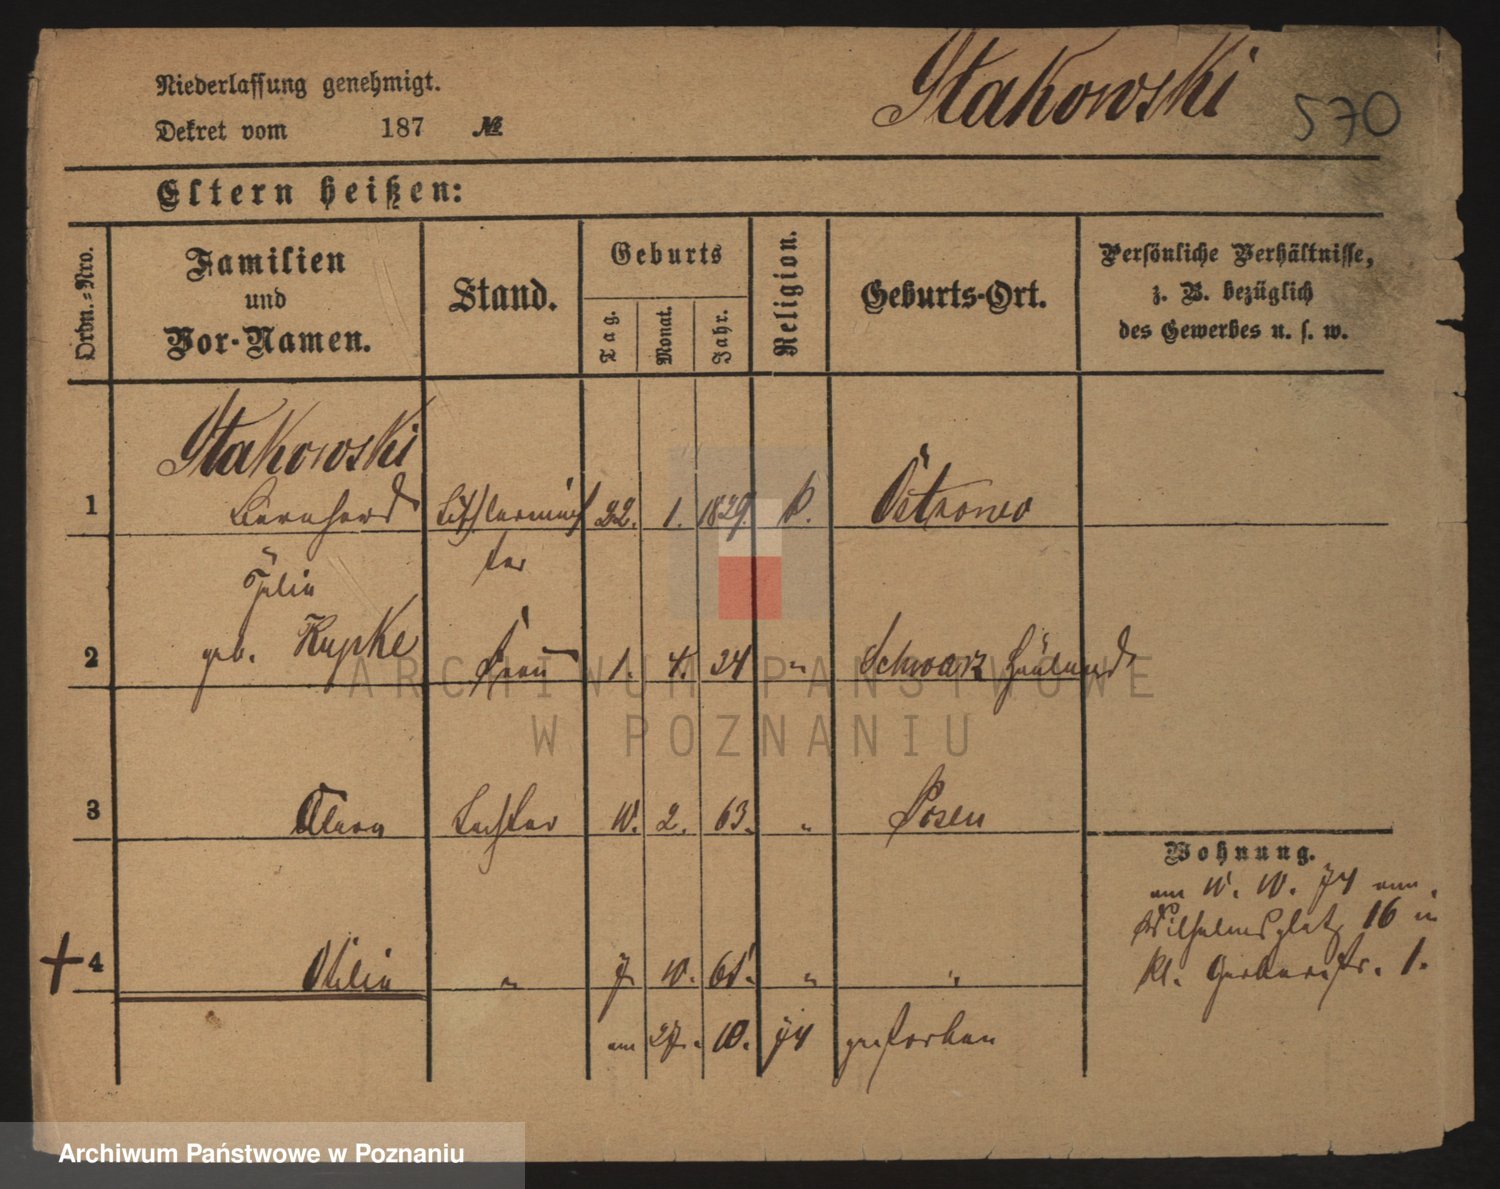 Niederlassung genehmigt.
Dekret vom 187 №
Stakowski 570
Eltern heißen:
Ordn.-Nro.
Familien und Vor-Namen.
Stand.
Geburts
Tag.
Monat.
Jahr.
Religion.
Geburts-Ort.
Persönliche Verhältnisse,
z. B. bezüglich
des Gewerbes u. s. w.
Stakowski
1 Bernhard Tischlermeis 22. 1. 1829. k. Ostrowo
ter
2 geb. Kupke Frau 1. 4. 34 " Schwarz Hauland
3 Tochter 10. 2. 63. " Posen
Wohnung.
am 10. 10. 74 von
Wilhelmsplatz 16 in
kl. Gerberstr. 1.
4 Otilie " 7. 10. 65. " "
am 27. 10. 74 gestorben
ARCHIWUM PAŃSTWOWE
W POZNANIU
Archiwum Państwowe w Poznaniu